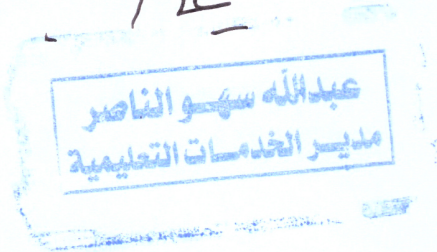 عبدالله سهو الناصر
مدير الخدمات التعليمية